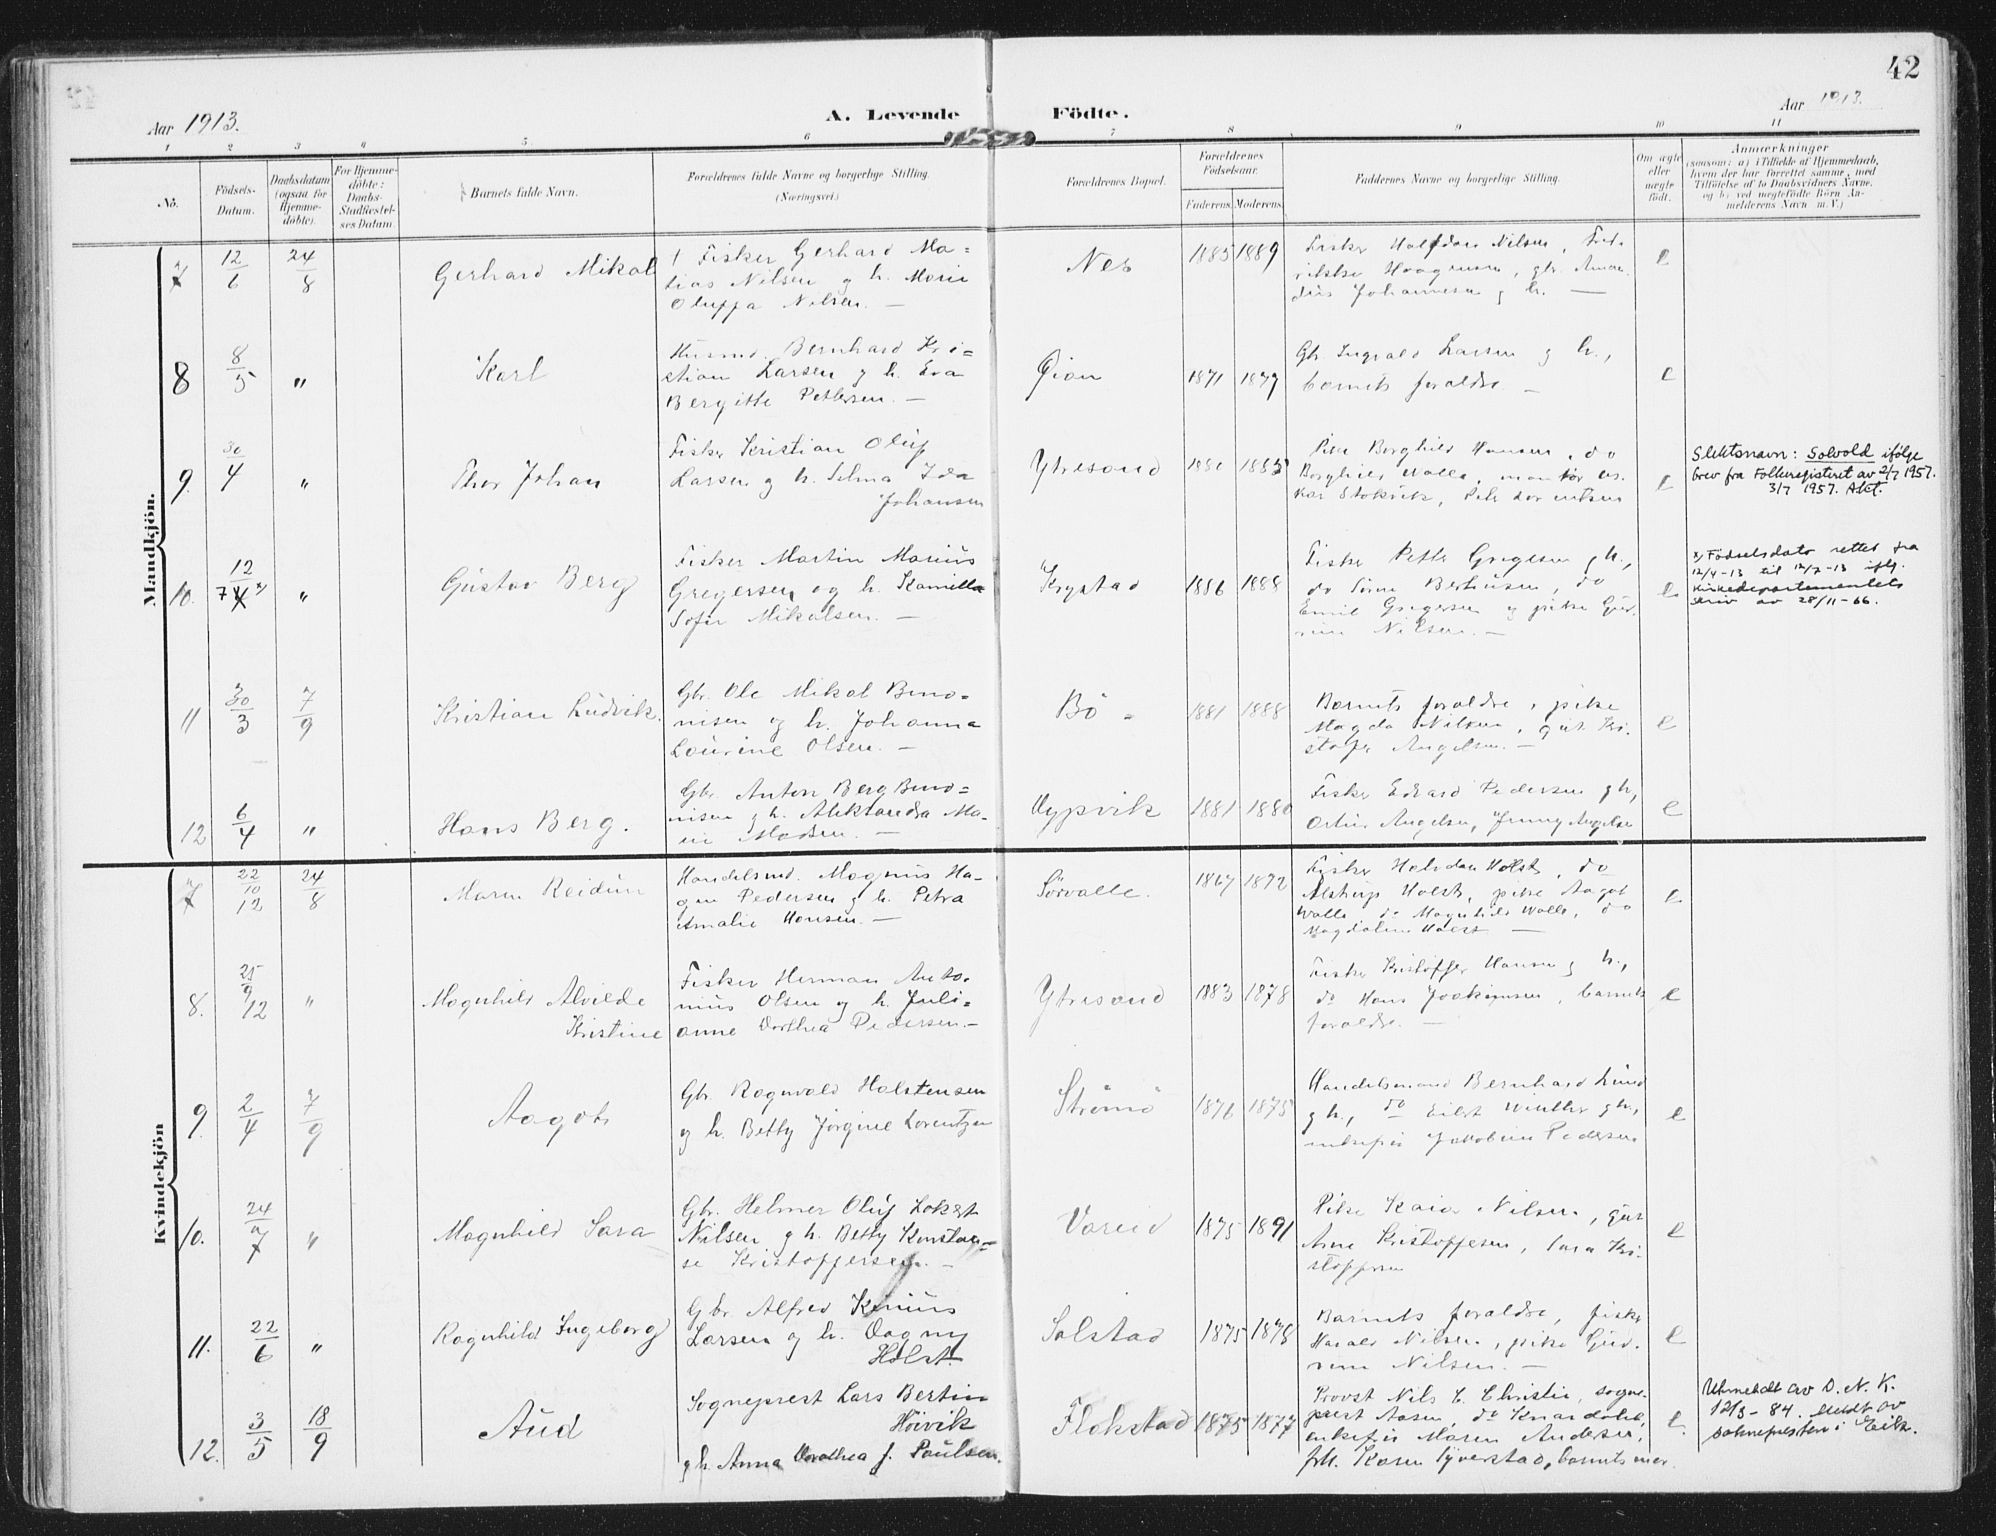 42
Aar 1913.
A. Levende Födte.
Aar 1913.
1 2 3 4 5 6 7 8 9 10 11
No.
Födsels-
Datum.
Daabsdatum
(ogsaa for
Hjemme-
døbte).
For Hjemme-
döbte:
Daabs-
Stadfæstel-
ses Datum
Barnets fulde Navn.
Forældrenes fulde Navne og borgerlige Stilling.
(Næringsvei.)
Forældrenes Bopæl.
Forældrenes
Födselsaar.
Faderens. Moderens.
Faddernes Navne og borgerlige Stilling.
Om ægte
eller
uægte
født.
Anmærkninger
(saasom: a) i Tilfælde af Hjemmedaab,
hvem der har forrettet samme, med
Tilföielse af to Daabsvidners Navne,
og b) ved uegtefödte Börn An-
melderens Navn m. V.)
Mandkjön.
7 12/6 24/8 Gerhard Mikal
Fisker Gerhard Ma=
tias Nilsen g h. Marie
Oluffa Nilsen. —
Nes 1885 1889
Fisker Halfdan Nilsen, Fred-
rikke Haagensen, gbr. Aman-
dus Johannesen g h. —
e
8 8/5 " Karl
Husmd. Bernhard Kri=
stian Larsen g h. Eva
Bergitte Pettersen. —
1871 1877
Gbr. Ingvald Larsen g h.,
barnets foraldre —
e
9. 30/4 " Thor Johan
Fisker Kristian Oluf
Larsen g h. Selma Ida
Johansen
Ytresand 1880 1885
Pike Borghild Hansen, do
Borghild Walle,
Stokvik,
e
Slektsnavn: Solvold ifølge
brev fra Folkeregisteret av 2/7 1957.
3/7 1957.
10. 12/7 4 x) " Gustav Berg
Fisker Martin Marius
Gregersen og h. Kamilla
Sofie Mikalsen. —
Krystad 1886 1888
Fisker Petter Gregersen g h.,
do Sören Berthusen, do
Emil Gregersen g pike Gud-
run Nilsen. —
e
x) Födselsdato rettet fra
12/4-13 til 12/7-13 iflg.
Kirkedepartementets
skriv av 28/11-66.
11 30/3 7/9 Kristian Ludvik.
Gbr. Ole Mikal Beno=
nisen og h. Johanna
Laurine Olsen. —
Bö 1881 1888
Barnets foraldre, pike
Magda Nilsen, gut Kri-
stofer Angelsen. —
e
12 6/4 " Hans Berg.
Gbr. Anton Berg Beno=
nisen g h. Aleksandra Ma-
rie Madsen. —
1881 1880
Fisker Edvard Pedersen g h,
Artur Angelsen, Jenny Angelsen
e
Kvindekjön
7 22/10 12 24/8 Maren Reidun
Handelsmd. Magnus Ha-
gen Pedersen g h. Petra
Amalie Hansen. —
Sörvalle. 1867 1872
Fisker Halvdan Holst, do
Holst, pike Aagot
Walle, do Magnhild Walle, do
Magdalene Holst —
e
8. 25/9 12 " Magnhild Alvilde
Kristine
Fisker Herman Anto-
nius Olsen og h. Juli=
anne Dorthea Pedersen.—
Ytresand 1883 1878
Fisker Kristoffer Hansen g h.,
do Hans Joakimsen, barnets
foraldre. —
e
9. 2/4 7/9 Aagot
Gbr. Ragnvald Halstensen
og h. Betty Jörgine Lorentzen
Strömö 1876 1875
Handelsmand Bernhard Lund
g h., do Eilert Winther g h.,
enkefru Jakobine Pedersen
e
10. 24/7 " Magnhild Sara
Gbr. Helmer Oluf Lokert
Nilsen g h. Betty Konstan=
se Kristoffersen. —
Vareid 1875 1891
Pike Kaia Nilsen, gut
Arne Kristoffersen, Sara Kri-
stoffersen
e
11. 22/6 " Ragnhild Ingeborg
Gbr Alfred Kinius
Larsen og h. Dagny
Holst.
Solstad 1875 1878
Barnets foraldre, fisker
Harald Nilsen, pike Gud-
run Nilsen. —
e
12. 3/5 18/9 Aud
Sogneprest Lars Bertin
Höivik
g h. Anna Dorothea J. Paulsen.
Flakstad 1875 1877
Provst Nils E. Christie, sogne-
prest Aasen, do
enkefru Maren Andersen,
frk. Karen barnets mor.
e.
Utmeldt av D. N. K.
12/3-84. Meldt av
soknepresten i Eik.